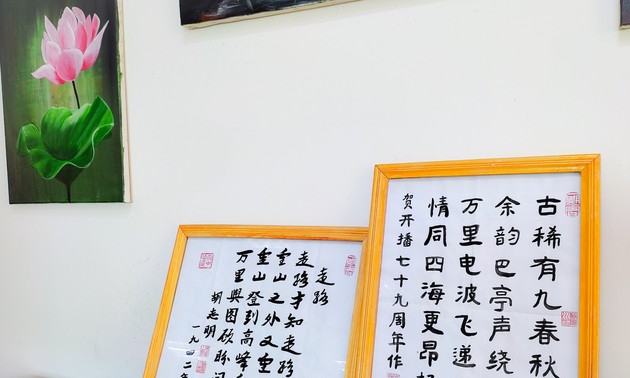 走路
走路才知走路
重山之外又重
重山登到高峰
万里舆图顾盼
胡志明
一九四二年
古稀有九春秋
余韵巴亭声绕
万里电波飞递
情同四海更昂
贺开播七十九周年作